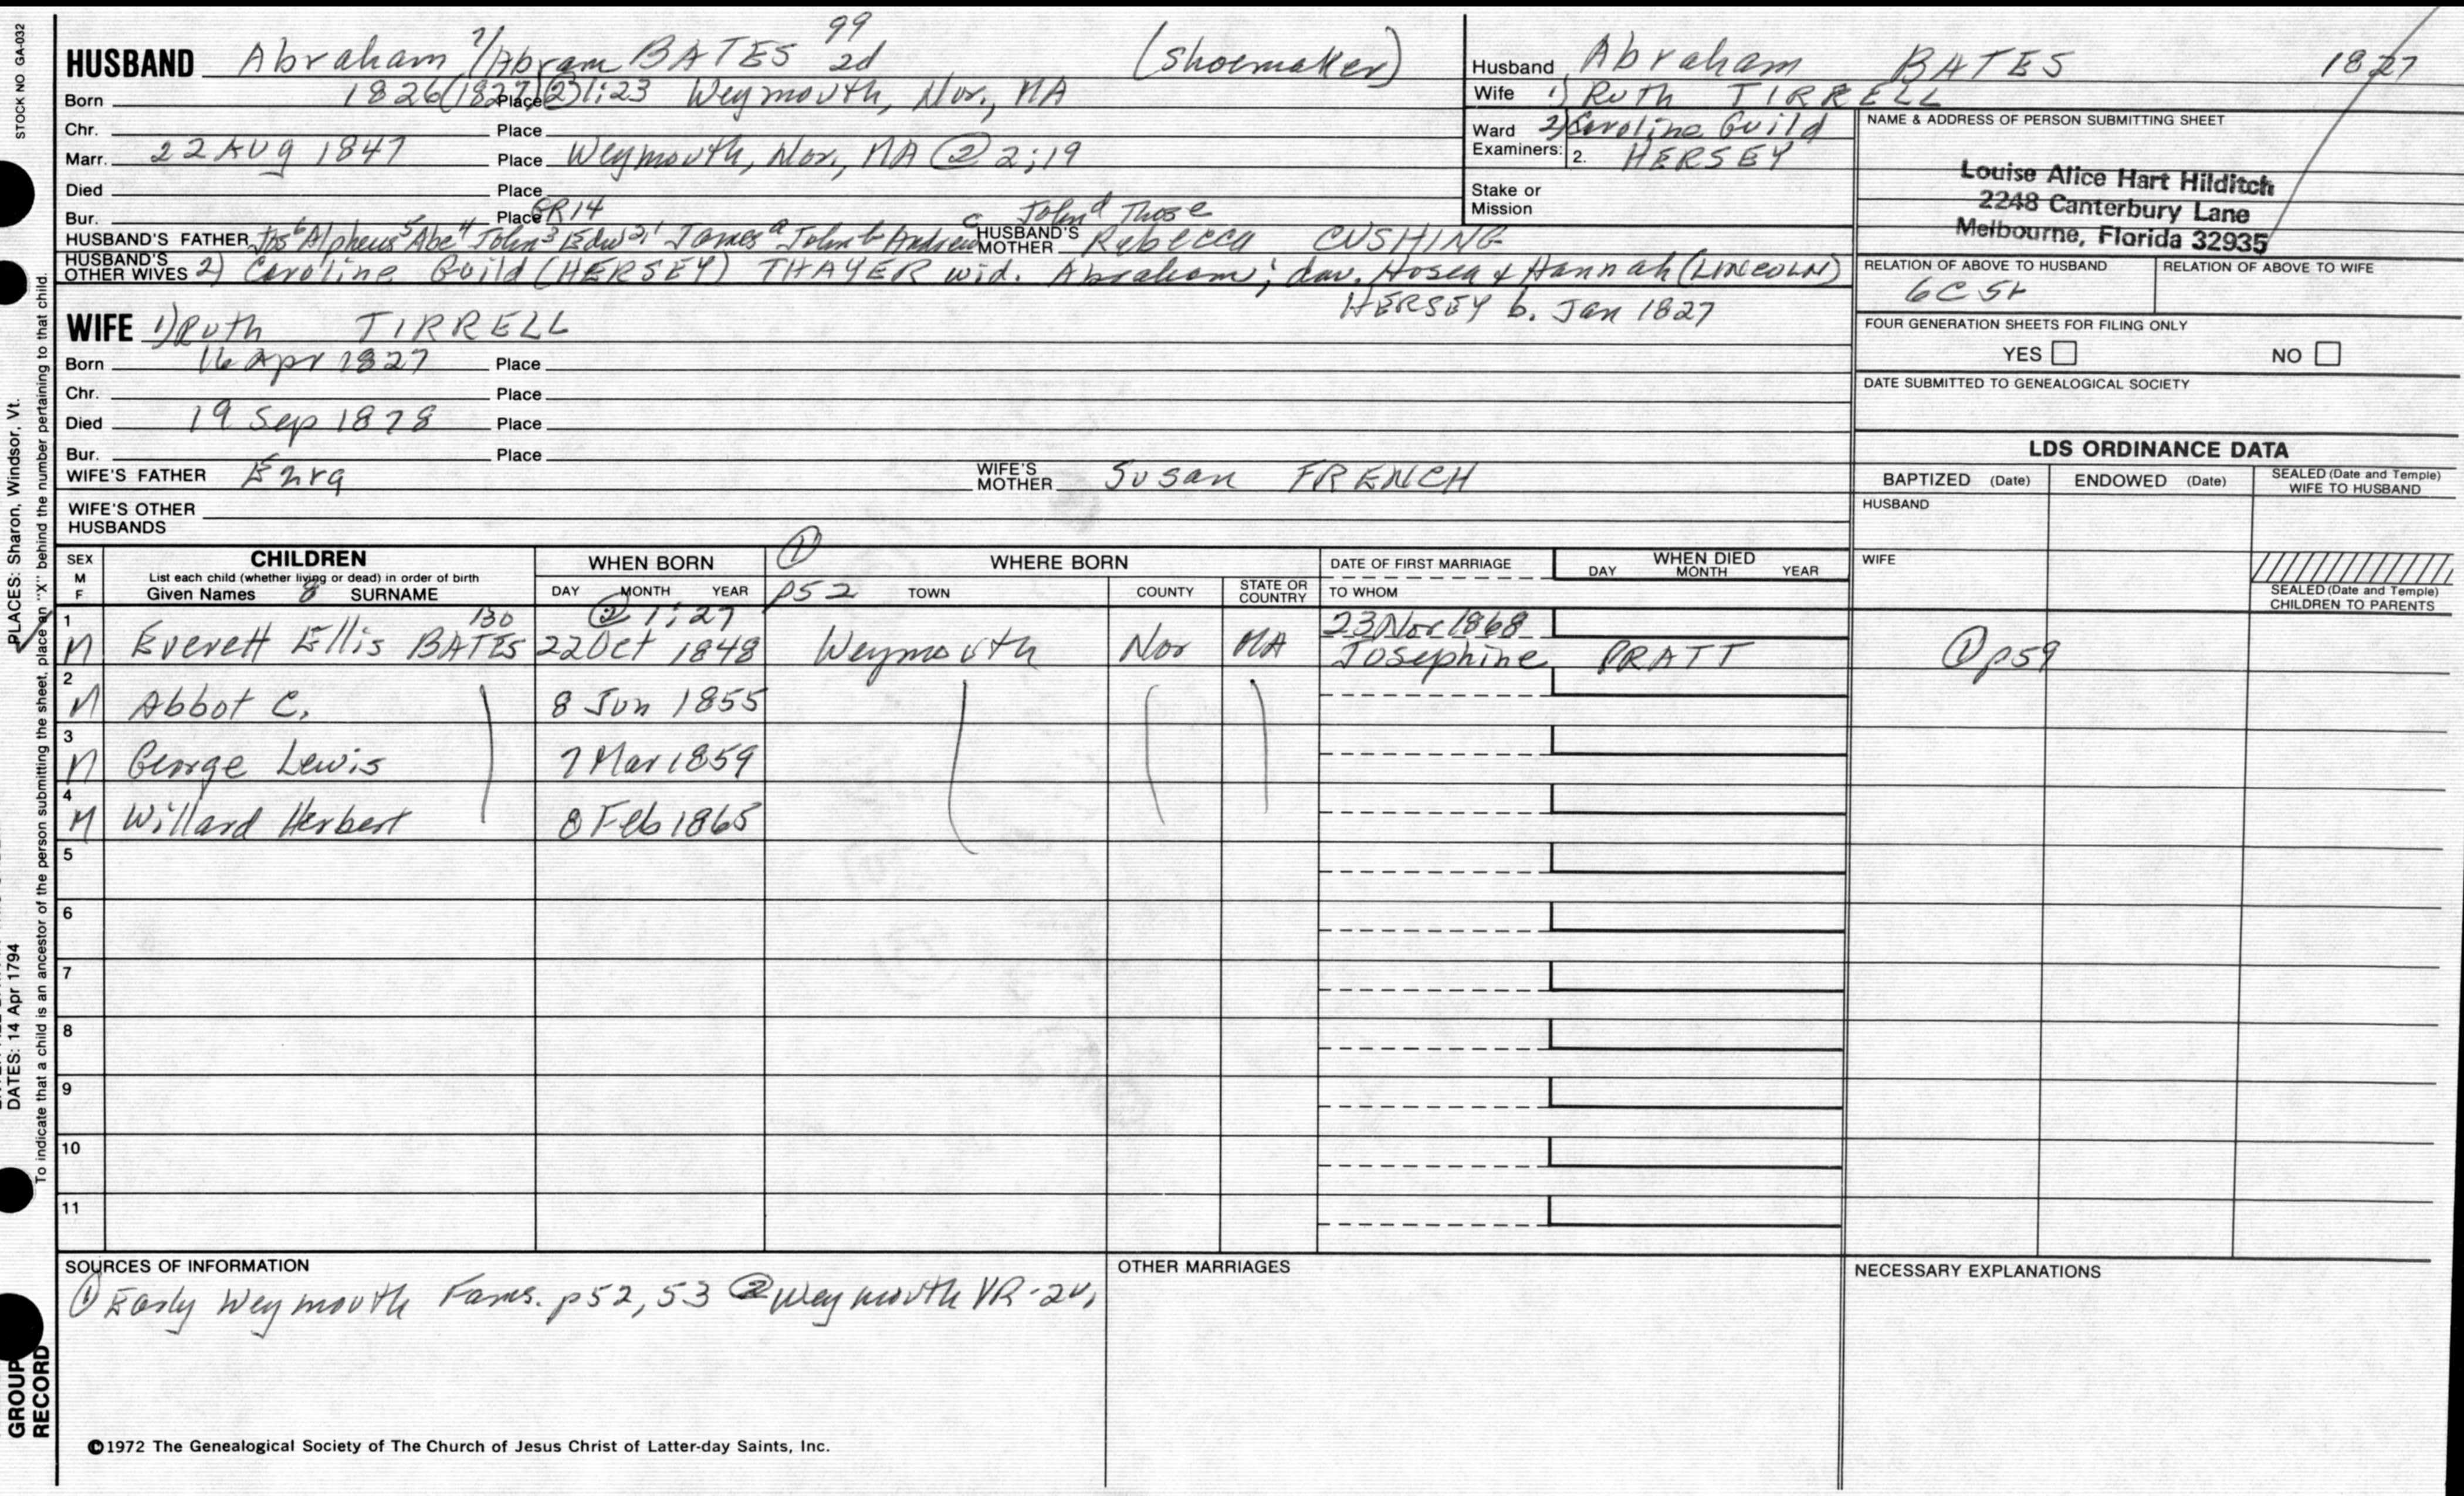 STOCK NO GA-032
99
HUSBAND Abraham 7/Abram BATES 2d (shoemaker)
Born 1826(1827) ② 1:23 Place Weymouth, Nor., MA
Chr. Place
Marr. 22 Aug 1847 Place Weymouth, Nor., MA ② 2:19
Died Place
Bur. Place GR14
HUSBAND'S FATHER Jos 6 Alpheus 5 Abe 4 John 3 Edw 2,1 James a John b Andrew c John d Thos e HUSBAND'S MOTHER Rebecca CUSHING
HUSBAND'S OTHER WIVES 2) Caroline Guild (HERSEY) THAYER wid. Abraham; dau. Hosea & Hannah (LINCOLN)
HERSEY b. Jan 1827
WIFE 1) Ruth TIRRELL
Born 16 Apr 1827 Place
Chr. Place
Died 19 Sep 1878 Place
Bur. Place
WIFE'S FATHER Ezra WIFE'S MOTHER Susan FRENCH
WIFE'S OTHER HUSBANDS
Husband Abraham BATES 1827
Wife 1) Ruth TIRRELL
Ward 2) Caroline Guild
Examiners: 2. HERSEY
Stake or Mission
NAME & ADDRESS OF PERSON SUBMITTING SHEET
Louise Alice Hart Hilditch
2248 Canterbury Lane
Melbourne, Florida 32935
RELATION OF ABOVE TO HUSBAND RELATION OF ABOVE TO WIFE
6C5r
FOUR GENERATION SHEETS FOR FILING ONLY
YES NO
DATE SUBMITTED TO GENEALOGICAL SOCIETY
LDS ORDINANCE DATA
BAPTIZED (Date) ENDOWED (Date) SEALED (Date and Temple) WIFE TO HUSBAND
HUSBAND
WIFE
SEALED (Date and Temple) CHILDREN TO PARENTS
SEX M F CHILDREN WHEN BORN ① WHERE BORN DATE OF FIRST MARRIAGE WHEN DIED
List each child (whether living or dead) in order of birth
Given Names 8 SURNAME DAY MONTH YEAR p52 TOWN COUNTY STATE OR COUNTRY TO WHOM DAY MONTH YEAR
130 ② 1:27 23 Nov 1868
1 M Everett Ellis BATES 22 Oct 1848 Weymouth Nor MA Josephine PRATT ① p59
2 M Abbot C. 8 Jun 1855
3 M George Lewis 7 Mar 1859
4 M Willard Herbert 8 Feb 1865
5
6
7
8
9
10
11
SOURCES OF INFORMATION
① Early Weymouth Fams. p52, 53 ② Weymouth VR-2v,
OTHER MARRIAGES
NECESSARY EXPLANATIONS
©1972 The Genealogical Society of The Church of Jesus Christ of Latter-day Saints, Inc.
PLACES: Sharon, Windsor, Vt.
DATES: 14 Apr 1794
To indicate that a child is an ancestor of the person submitting the sheet, place an "X" behind the number pertaining to that child.
GROUP
RECORD